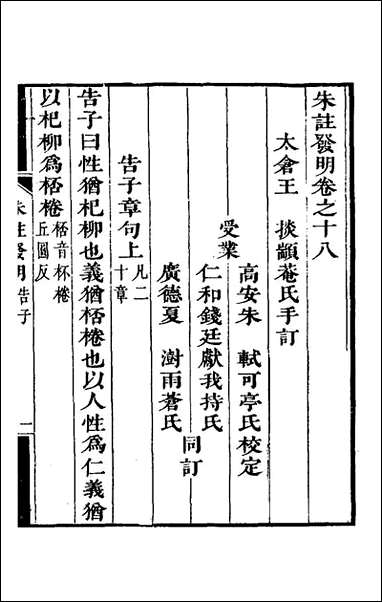 朱註發明卷之十八
太倉王　掞顓菴氏手訂
高安朱　軾可亭氏校定
受業
仁和錢廷獻我持氏
廣德夏　澍雨蒼氏
同訂
告子章句上凡二十章
告子曰性猶杞柳也義猶桮棬也以人性為仁義猶
以杞柳為桮棬桮音杯棬丘圓反
朱註發明　告子　一